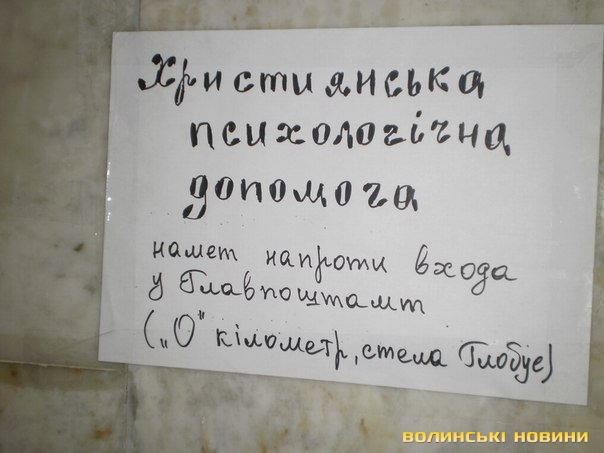 Християнська
психологічна
допомога
намет напроти входа
у Главпоштамт
(„О" кілометр, стела Глобус)
ВОЛИНСЬКІ НОВИНИ